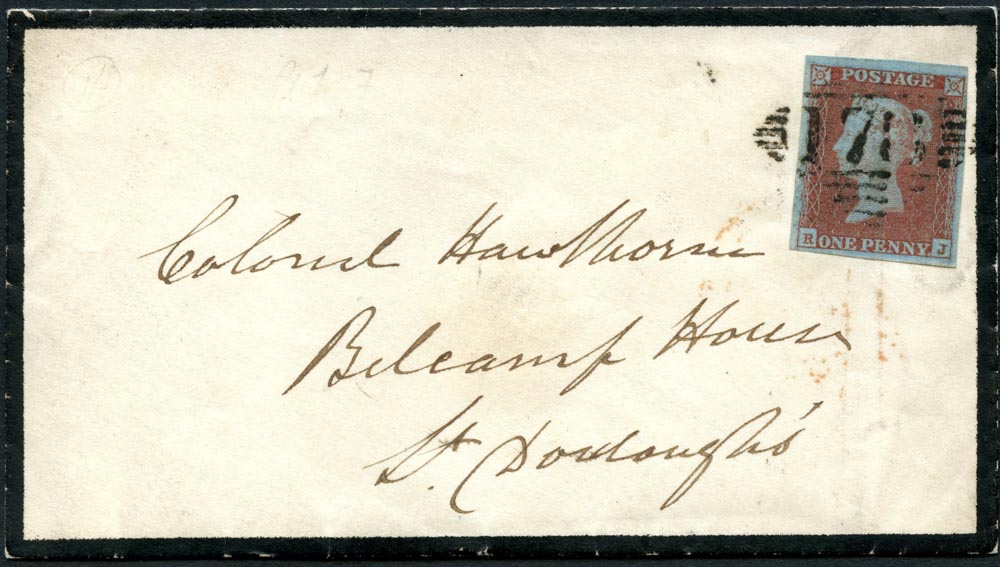 POSTAGE
R ONE PENNY. J
Colonel Hawthorne
Belcamp House
St. Doulough's